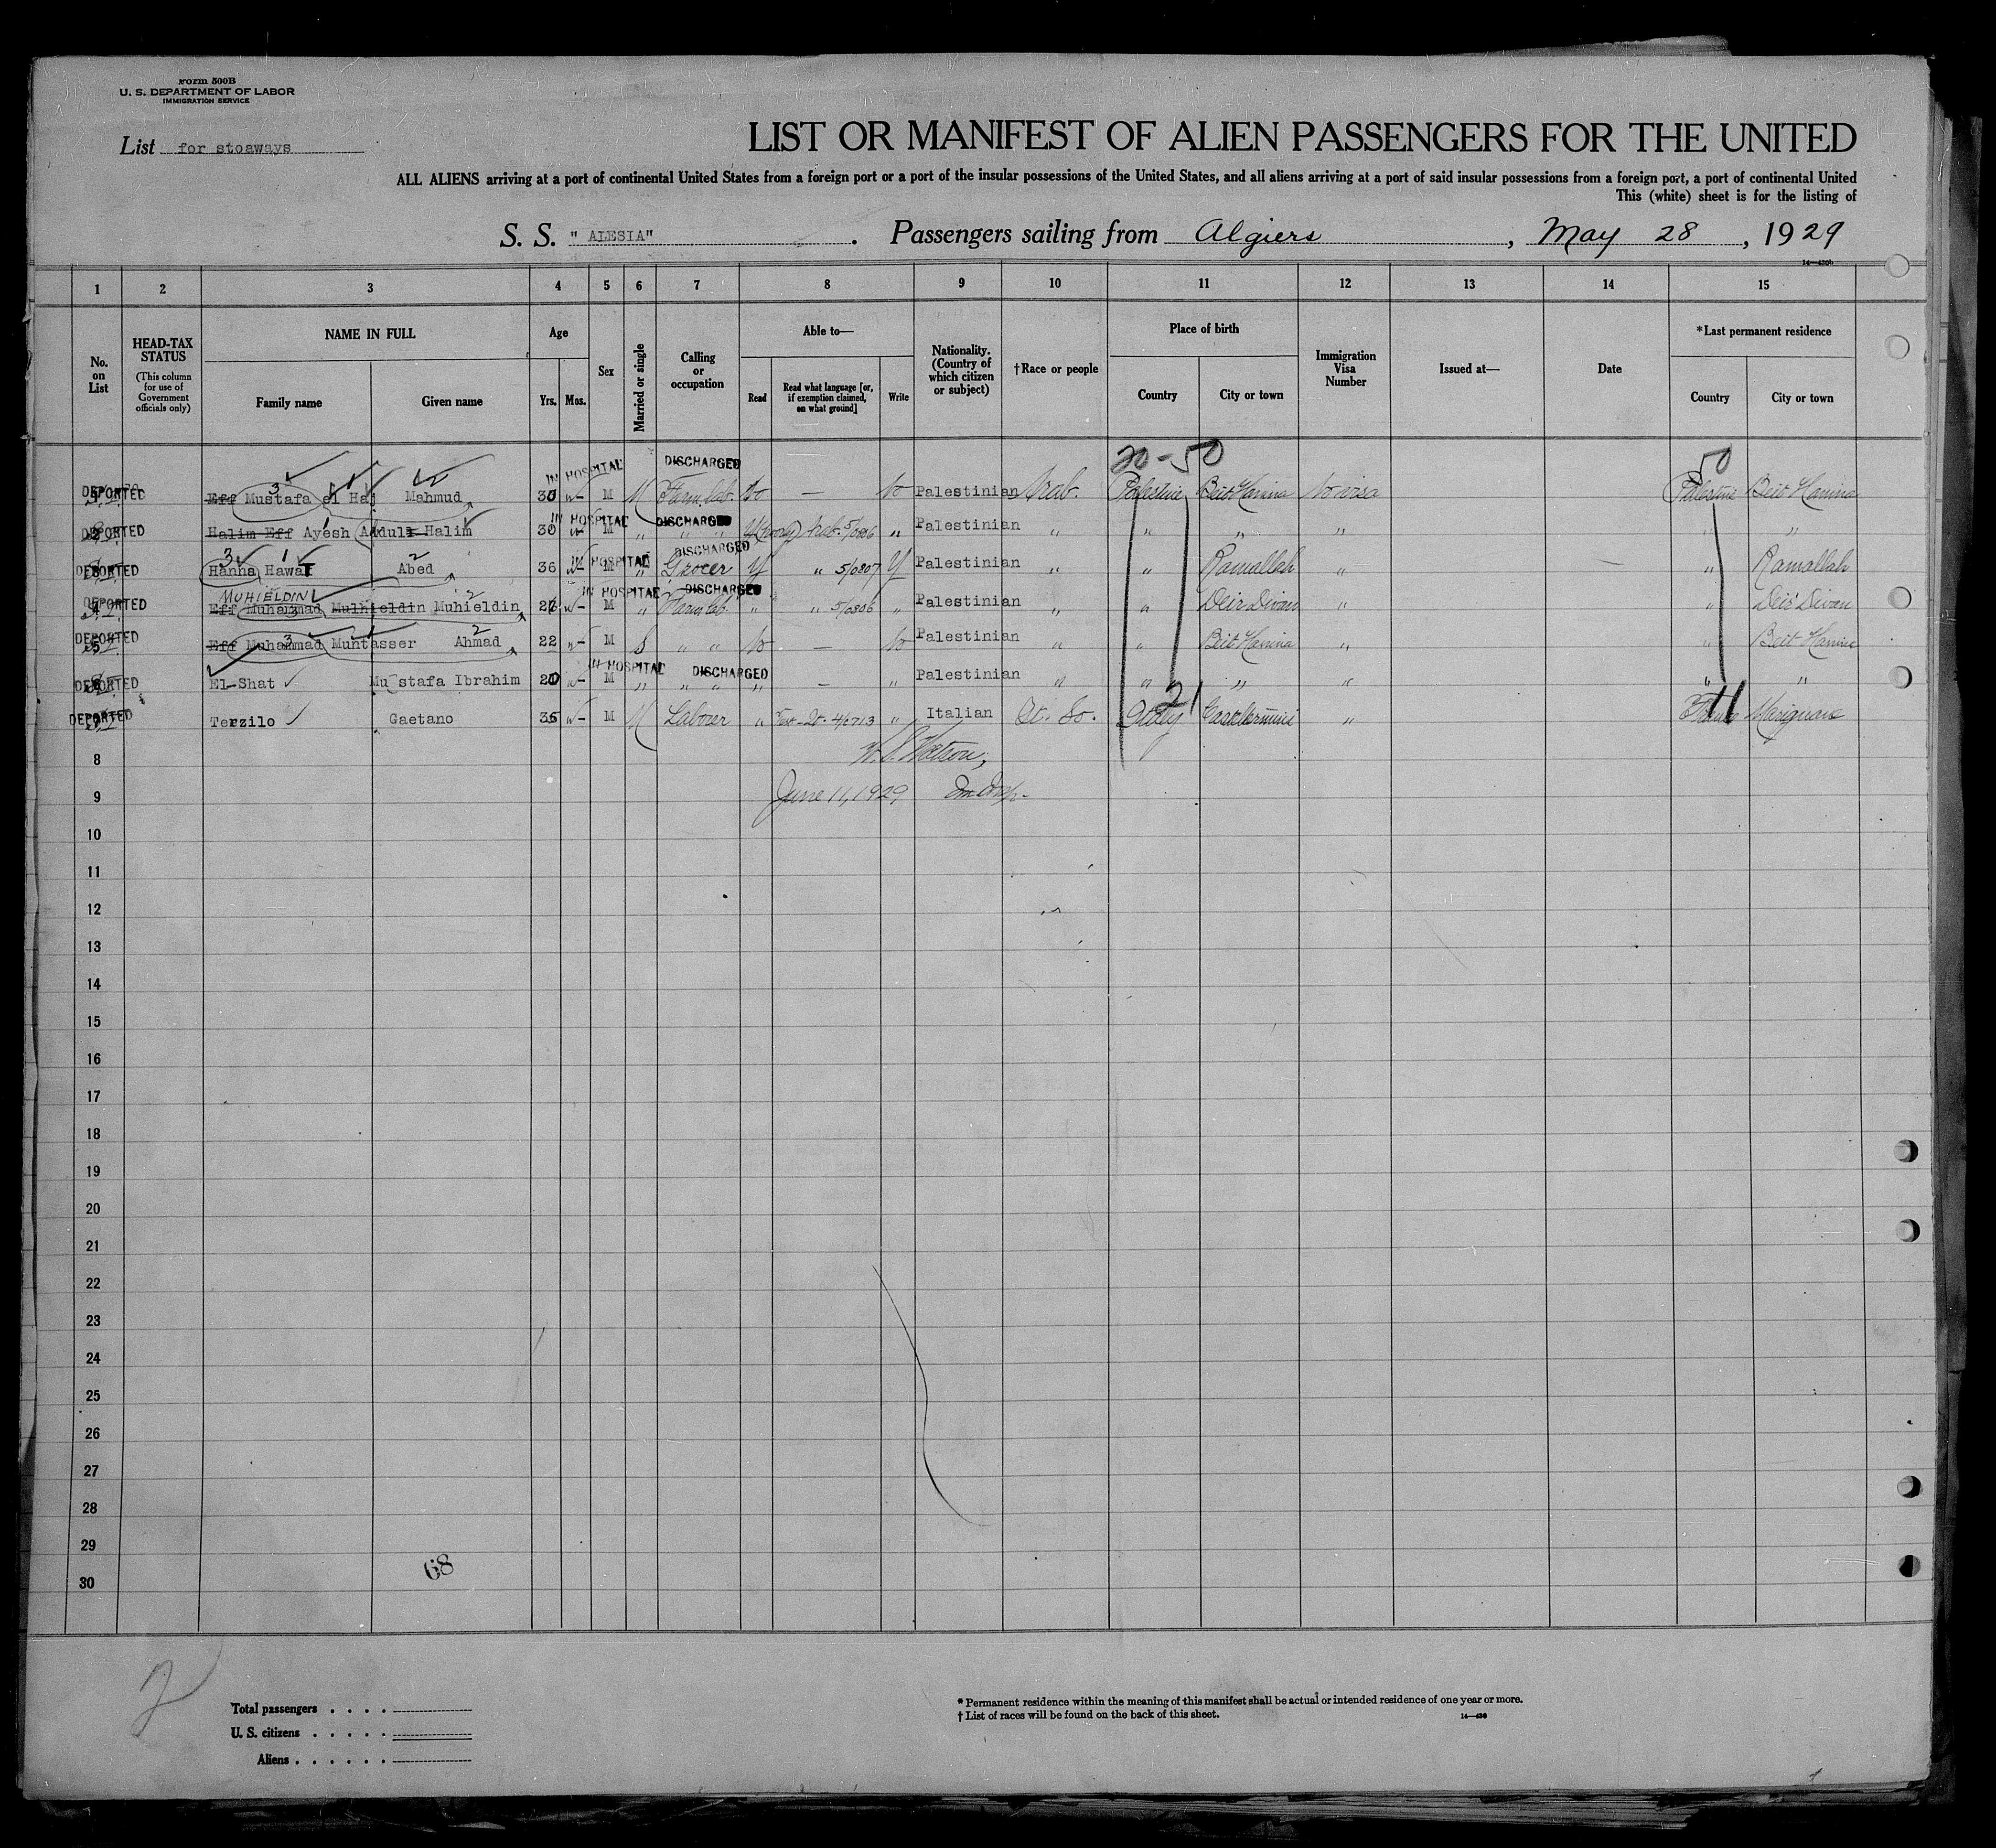 Form 500B
U. S. DEPARTMENT OF LABOR
IMMIGRATION SERVICE
List for stoaways
LIST OR MANIFEST OF ALIEN PASSENGERS FOR THE UNITED
ALL ALIENS arriving at a port of continental United States from a foreign port or a port of the insular possessions of the United States, and all aliens arriving at a port of said insular possessions from a foreign port, a port of continental United
This (white) sheet is for the listing of
S. S. " ALESIA" . Passengers sailing from Algiers , May 28 , 1929
1 2 3 4 5 6 7 8 9 10 11 12 13 14 15
No. on List
HEAD-TAX STATUS (This column for use of Government officials only)
NAME IN FULL
Family name Given name
Age
Yrs. Mos.
Sex
Married or single
Calling or occupation
Able to—
Read Read what language [or, if exemption claimed, on what ground] Write
Nationality. (Country of which citizen or subject)
†Race or people
Place of birth
Country City or town
Immigration Visa Number
Issued at—
Date
*Last permanent residence
Country City or town
20-50 50
IN HOSPITAL DISCHARGED
DEPORTED Eff Mustafa el Haj Mahmud 30 M M Farm lab. No — No Palestinian Arab. Palestine Beit Hanina No visa Palestine Beit Hanina
IN HOSPITAL DISCHARGED
DEPORTED 2 Halim Eff Ayesh Abdul Halim 30 M " " " 5/0806 " Palestinian " " " " " "
IN HOSPITAL DISCHARGED
DEPORTED 3 Hanna Hawat Abed 36 M " Grocer Y " 5/0807 Y Palestinian " " Ramallah " " Ramallah
MUHIELDIN IN HOSPITAL DISCHARGED
DEPORTED 4 Eff Muhammad Mulhieldin Muhieldin 26 M " Farm lab. " " 5/0806 " Palestinian " " Deir Divan " " Deir Divan
DEPORTED 5 Eff Muhammad Muntasser Ahmad 22 M S " " No — No Palestinian " " Beit Hanina " " Beit Hanina
IN HOSPITAL DISCHARGED
DEPORTED El-Shat Mustafa Ibrahim 20 M " " " " — " Palestinian " " " " " "
DEPORTED Terzilo Gaetano 35 M M Laborer " 4/6713 " Italian It. So. Italy 21 " France 11 Marignane
8 W. S. Watson,
9 June 11, 1929 Im Insp.
10
11
12
13
14
15
16
17
18
19
20
21
22
23
24
25
26
27
28
29
68
30
2
Total passengers . . . .
U. S. citizens . . . . .
Aliens . . . . . .
* Permanent residence within the meaning of this manifest shall be actual or intended residence of one year or more.
† List of races will be found on the back of this sheet.